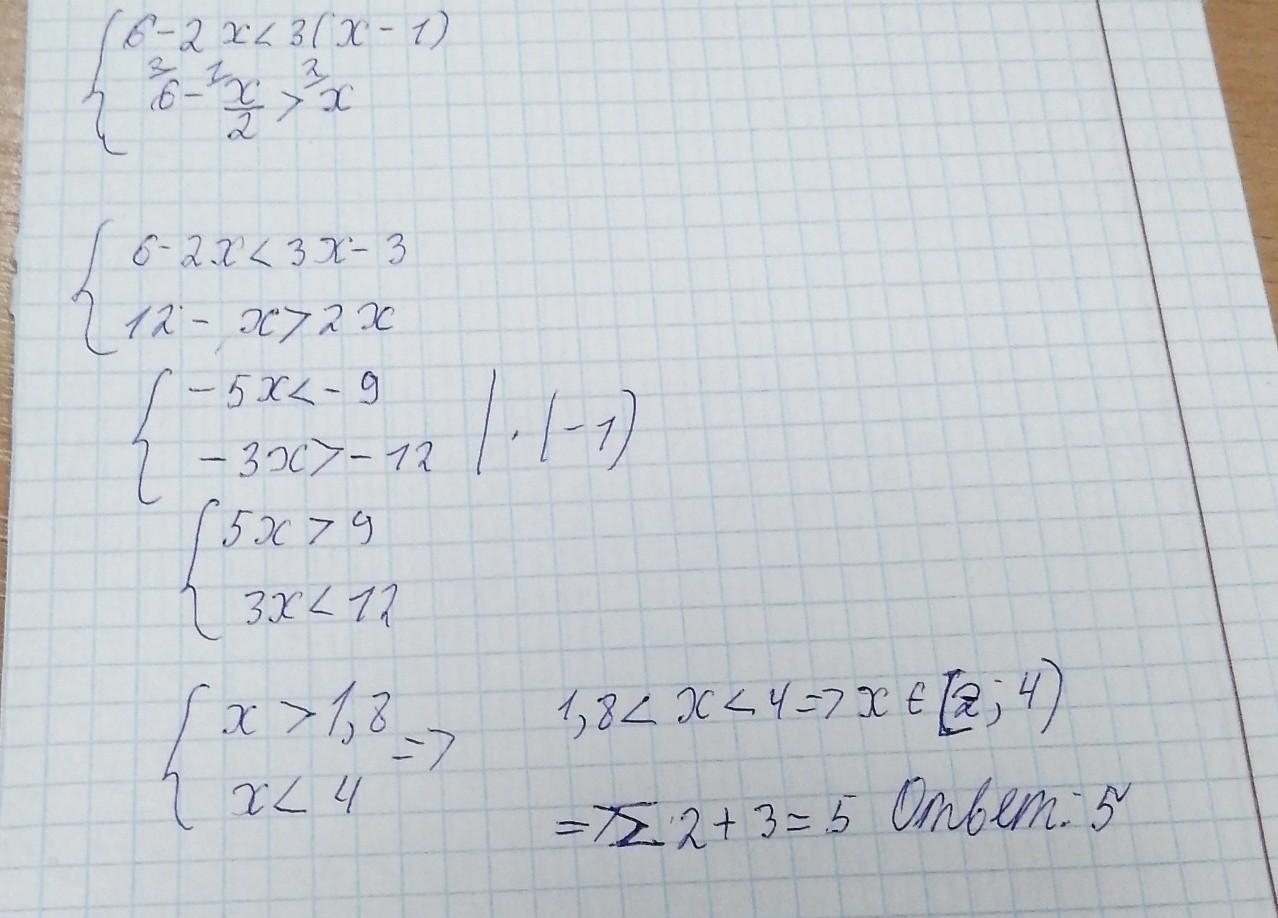 6 - 2x < 3(x - 1)
²6 - ¹x/2 > ²x
6 - 2x < 3x - 3
12 - x > 2x
-5x < -9
-3x > -12 | · (-1)
5x > 9
3x < 12
x > 1,8 =>
x < 4
1,8 < x < 4 => x ∈ [2; 4)
=> Σ 2 + 3 = 5 Ответ: 5